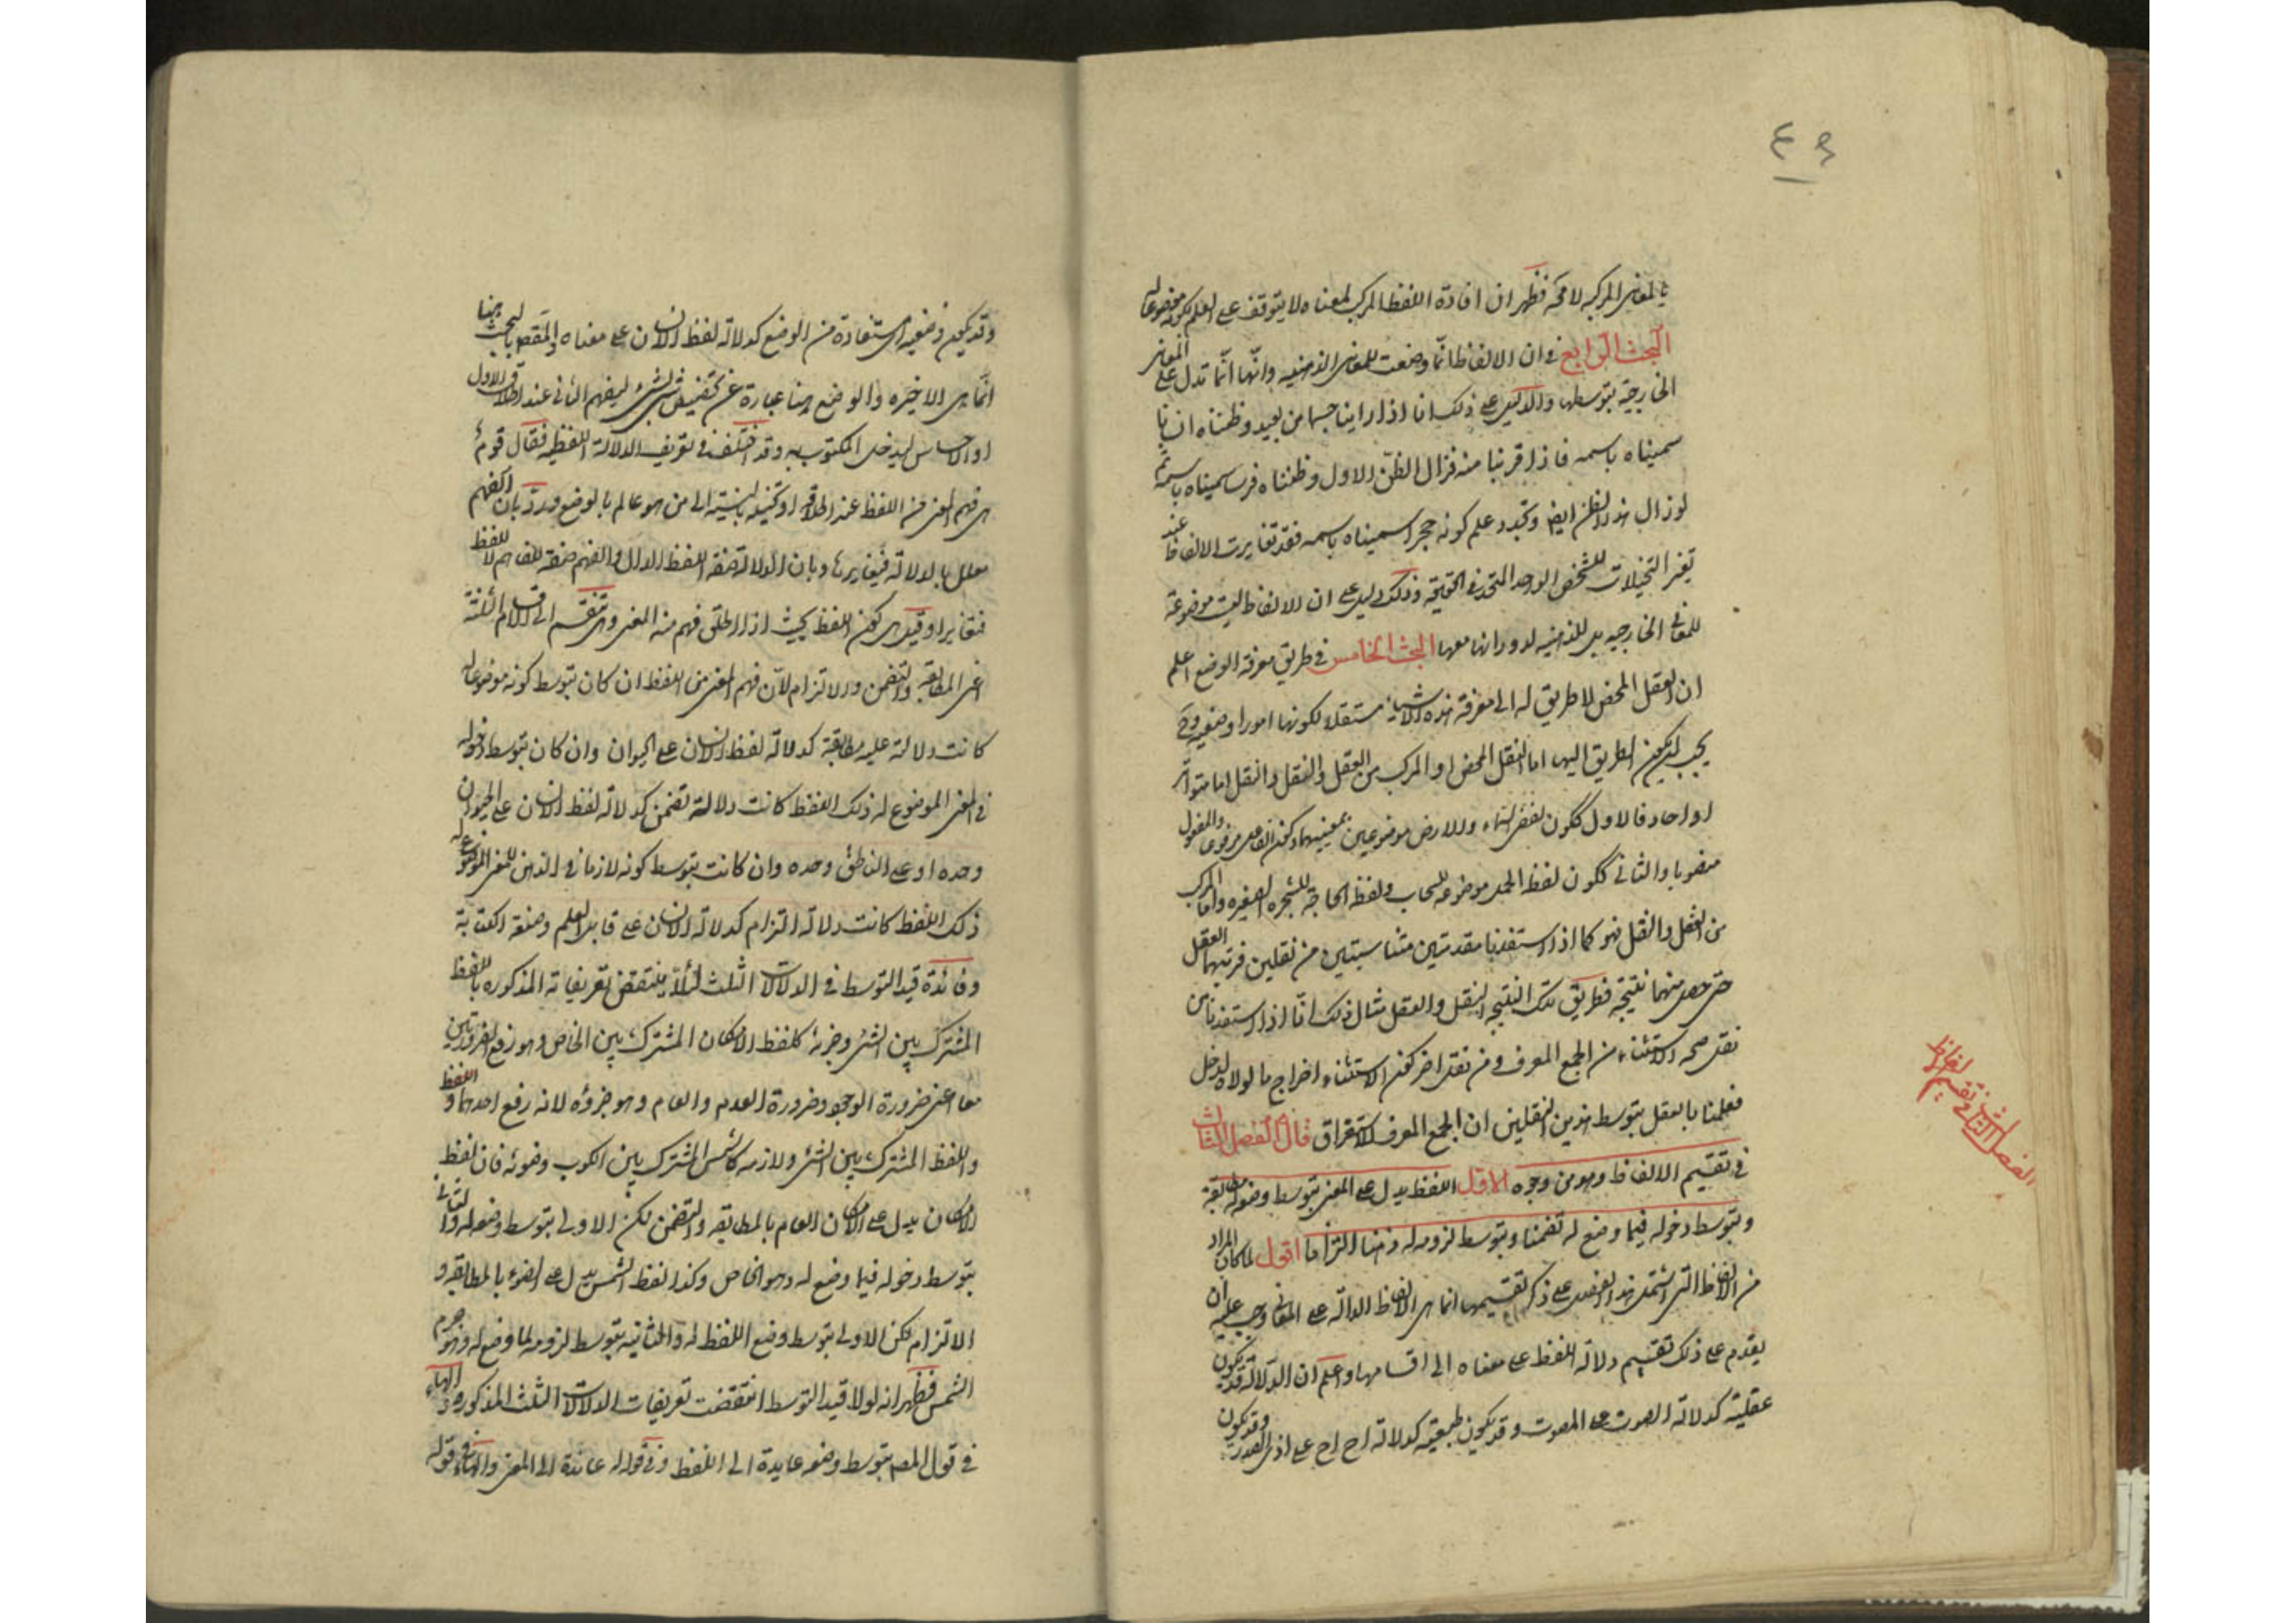 ٤٩
بالمعانى المركبه لا محة فظهر ان افادة اللفظ المركب لمعناه لا يتوقف على العلم بكونه موضوعا له
البحث الرابع فى ان الالفاظ انما وضعت للمعانى الذهنيه وانها انما تدل على المعانى
الخارجية بتوسطها والدليل على ذلك انا اذا راينا جسما من بعيد وظنناه انسانا
سميناه باسمه فاذا قربنا منه فزال الظن الاول وظنناه فرسا سميناه باسمه ثم
لو زال هذا الظن ايض وتجدد علم كونه حجرا سميناه باسمه فقد تغايرت الالفاظ عند
تغير التخيلات للشخص الواحد المتحد فى الحقيقة وذلك دليل على ان الالفاظ ليست موضوعة
للمعانى الخارجيه بل للذهنيه لدورانها معها البحث الخامس فى طريق معرفة الوضع اعلم
ان العقل المحض لا طريق له الى معرفة هذه الاشياء مستقلا لكونها امورا وضعيه وح
يجب ان يكون الطريق اليها اما النقل المحض او المركب من العقل والنقل والنقل اما متواتر
او احاد فالاول ككون لفظ السماء والارض موضوعين لمعنييهما وكون الفاعل مرفوعا والمفعول
منصوبا والثانى ككون لفظ الحمد موضوعه للسحاب ولفظ الحاجة للشجره الصغيره واما المركب
من العقل والنقل فهو كما اذا استفدنا مقدمتين متناسبتين من نقلين فرتبهما العقل
حتى حصل منهما نتيجة فطريق تلك النتيجه النقل والعقل مثال ذلك انا اذا استفدنا من
نقل صحة الاستثناء من الجمع المعرف ومن نقل اخر كون الاستثناء اخراج ما لولاه لدخل
فعلمنا بالعقل بتوسط هذين النقلين ان الجمع المعرف للاستغراق قال الفصل الثالث
فى تقسيم الالفاظ وهو من وجوه الاول اللفظ يدل على المعنى بتوسط وضعه له مطابقة
وبتوسط دخوله فيما وضع له تضمنا وبتوسط لزومه له ذهنا التزاما اقول لما كان المراد
من الالفاظ التى اشتمل هذا الفصل على ذكر تقسيمها انما هى الالفاظ الدالة على المعانى وجب عليه ان
يقدم على ذلك تقسيم دلالة اللفظ على معناه الى اقسامها واعلم ان الدلالة قد يكون
عقلية كدلالة الصوت على المصوت وقد يكون طبيعيه كدلالة اح اح على اذى الصدر
وقد يكون
الفصل الثالث فى تقسيم الالفاظ
وقد يكون وضعيه اى مستفادة من الوضع كدلالة لفظ الانسان على معناه والمقص بالبحث هنا
انما هى الاخيره والوضع هنا عبارة عن تخصيص شئ بشئ ليفهم الثانى عند اطلاق الاول
او الاحساس ليدخل المكتوب به وقد اختلف فى تعريف الدلالة اللفظيه فقال قوم
هى فهم المعنى من اللفظ عند اطلاقه او تخيله بالنسبة الى من هو عالم بالوضع ورد بان الفهم
معلل بالدلالة فيغايرها وبان الدلالة صفة اللفظ الدال والفهم صفة للفاهم لا للفظ
فتغايرا وقيل هى كون اللفظ بحيث اذا اطلق فهم منه المعنى وهى تنقسم الى اقسام الثلثة
اعنى المطابقه والتضمن والالتزام لان فهم المعنى من اللفظ ان كان بتوسط كونه موضوعا له
كانت دلالة عليه مطابقة كدلالة لفظ الانسان على الحيوان وان كان بتوسط دخوله
فى المعنى الموضوع له ذلك اللفظ كانت دلالة تضمن كدلالة لفظ الانسان على الحيوان
وحده او على الناطق وحده وان كانت بتوسط كونه لازما فى الذهن للمعنى الموضوع له
ذلك اللفظ كانت دلالة التزام كدلالة الانسان على قابل العلم وصنعة الكتابة
وفائدة قيد التوسط فى الدلالات الثلث لئلا ينتقض تعريفاته المذكوره باللفظ
المشترك بين الشئ وجزئه كلفظ الامكان المشترك بين الخاص وهو رفع الضرورتين
معا اعنى ضرورة الوجود وضرورة العدم والعام وهو جزؤه لانه رفع احديهما واللفظ
واللفظ المشترك بين الشئ ولازمه كالشمس المشترك بين الكوكب وضوئه فان لفظ
الامكان يدل على الامكان العام بالمطابقه والتضمن لكن الاولى بتوسط وضعه له والثانى
بتوسط دخوله فيما وضع له وهو الخاص وكذا لفظ الشمس يدل على الضوء بالمطابقه و
الالتزام لكن الاولى بتوسط وضع اللفظ له والثانيه بتوسط لزومه لما وضع له وهو جرم
الشمس فظهر انه لولا قيد التوسط انتقضت تعريفات الدلالات الثلث المذكوره والهاء
فى قول المص بتوسط وضعه عايدة الى اللفظ وفى قوله له عائدة الى المعنى والهاء فى قوله